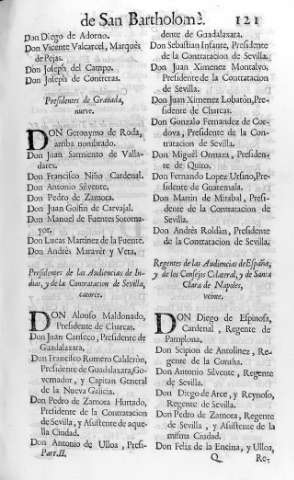 de San Bartholomè. 121
Don Diego de Adorno.
Don Vicente Valcarcel, Marquès
de Pejas.
Don Joseph del Campo.
Don Joseph de Contreras.
Presidentes de Granada,
nueve.
DON Geronymo de Roda,
arriba nombrado.
Don Juan Sarmiento de Valla-
dares.
Don Francisco Niño Cardenal.
Don Antonio Silvente.
Don Pedro de Zamora.
Don Juan Golfin de Carvajal.
Don Manuel de Fuentes Sotoma-
yor.
Don Lucas Martinez de la Fuente.
Don Andrès Maravèr y Vera.
Presidentes de las Audiencias de In-
dias, y de la Contratacion de Sevilla,
catorce.
DON Alonso Maldonado,
Presidente de Charcas.
Don Juan Canseco, Presidente de
Guadalaxara.
Don Francisco Romero Calderòn,
Presidente de Guadalaxara, Go-
vernador, y Capitan General
de la Nueva Galicia.
Don Pedro de Zamora Hurtado,
Presidente de la Contratacion
de Sevilla, y Assistente de aque-
lla Ciudad.
Don Antonio de Ulloa, Presi-
Part. II.
dente de Guadalaxara.
Don Sebastian Infante, Presidente
de la Contratacion de Sevilla.
Don Juan Ximenez Montalvo,
Presidente de la Contratacion
de Sevilla.
Don Juan Ximenez Lobatòn, Pre-
sidente de Charcas.
Don Gonzalo Fernandez de Cor-
dova, Presidente de la Con-
tratacion de Sevilla.
Don Miguèl Ormaza, Presiden-
te de Quito.
Don Fernando Lopez Ursino, Pre-
sidente de Guatemala.
Don Martin de Mirabal, Presi-
dente de la Contratacion de
Sevilla.
Don Andrès Roldàn, Presidente
de la Contratacion de Sevilla.
Regentes de las Audiencias de España,
y de los Consejos Colateral, y de Santa
Clara de Napoles,
veinte.
DON Diego de Espinosa,
Cardenal, Regente de
Pamplona.
Don Scipion de Antolinez, Re-
gente de la Coruña.
Don Antonio Silvente, Regente
de Sevilla.
Don Diego de Arce, y Reynoso,
Regente de Sevilla.
Don Pedro de Zamora, Regente
de Sevilla, y Assistente de la
misma Ciudad.
Don Felix de la Encina, y Ulloa,
Q Re-